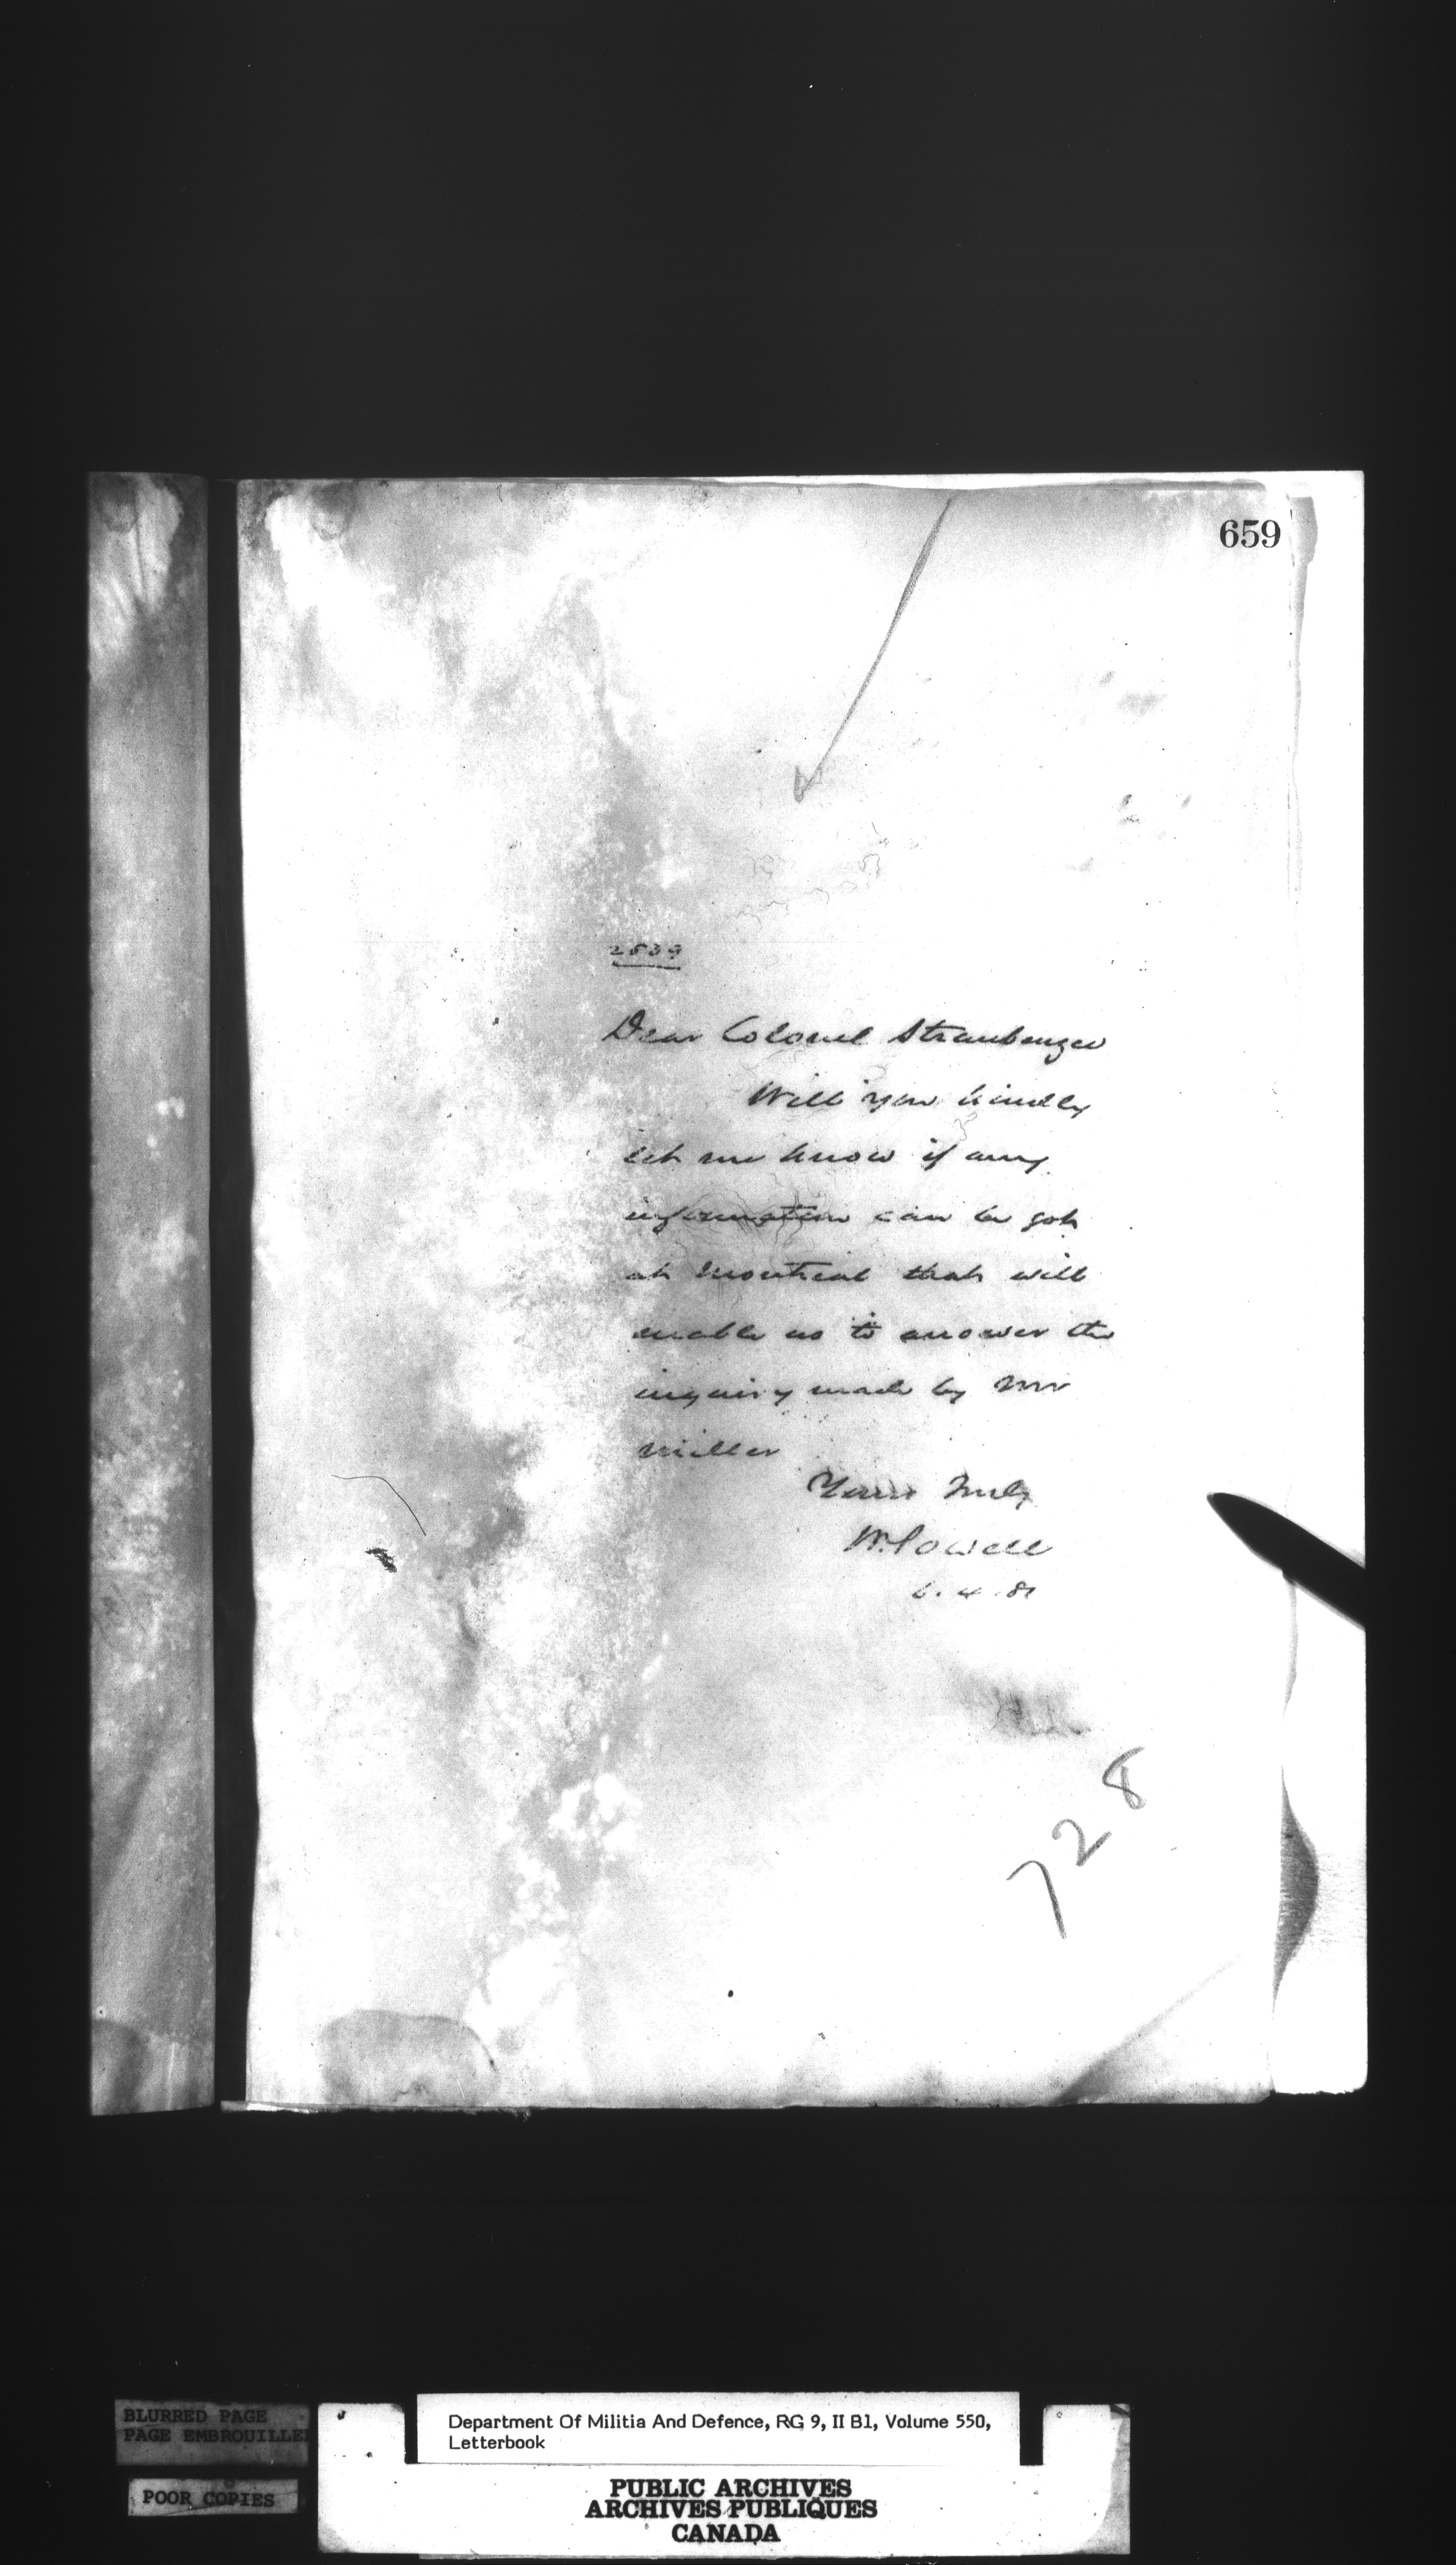 659
2539
Dear Colonel Straubenzee
Will you kindly
let me know if any
information can be got
at Montreal that will
enable us to answer the
inquiry made by Mr
Miller
Yours truly
W. Powell
6.4.81
728
BLURRED PAGE
PAGE EMBROUILLEE
POOR COPIES
Department Of Militia And Defence, RG 9, II B1, Volume 550,
Letterbook
PUBLIC ARCHIVES
ARCHIVES PUBLIQUES
CANADA